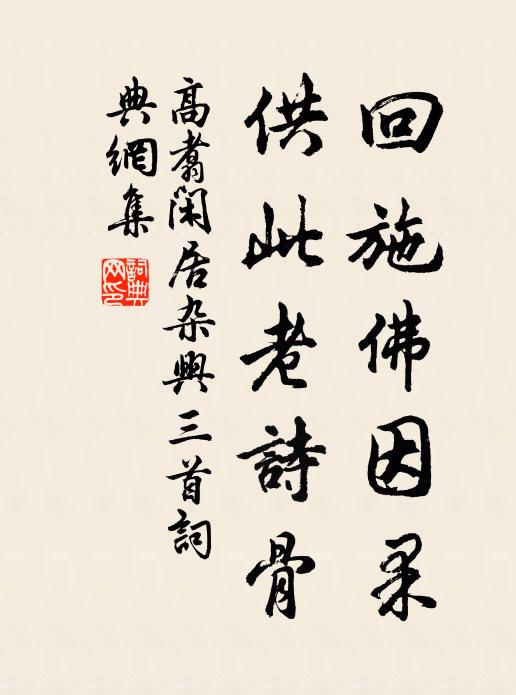 回施佛因果
供此老詩骨
高翥閑居杂興三首詞
典網集
詞典
网印